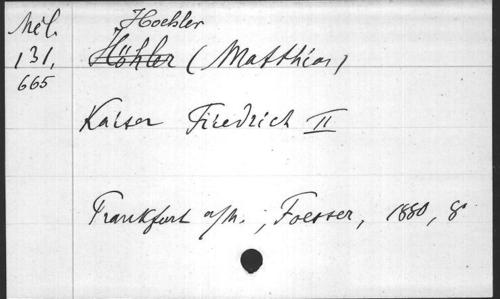 Hoehler
Mél. Höhler (Matthias)
131,
665
Kaiser Friedrich II
Frankfurt a/M., Foesser, 1880, 8°